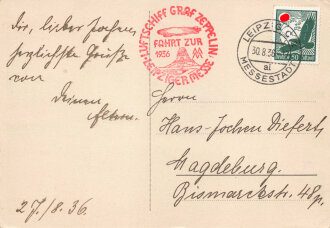 Dir, lieber Jochen,
herzlichste Grüße
von
Deinen
Eltern.
27./8.36.
LUFTSCHIFF GRAF ZEPPELIN
FAHRT ZUR
1936
LEIPZIGER MESSE
LEIPZIG C2
30.8.36
al
MESSESTADT
50
Herrn
Hans-Jochen Diefert,
Magdeburg.
Bismarckstr. 48p.